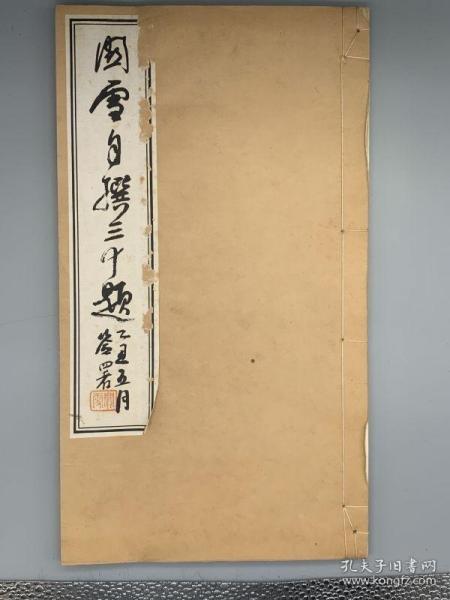 雪自撰三十题
乙丑五月
署
孔夫子旧书网
www.kongfz.com